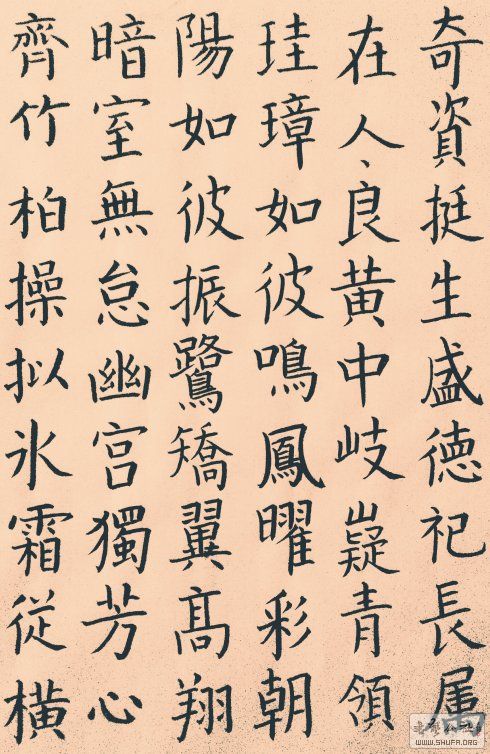 奇資挺生盛德祀長属
在人、良黄中岐嶷青領
珪璋如彼鳴鳳曜彩朝
陽如彼振鷺矯翼髙翔
暗室無怠幽宮獨芳心
齊竹柏操拟氷霜従橫
WWW.SHUFA.ORG